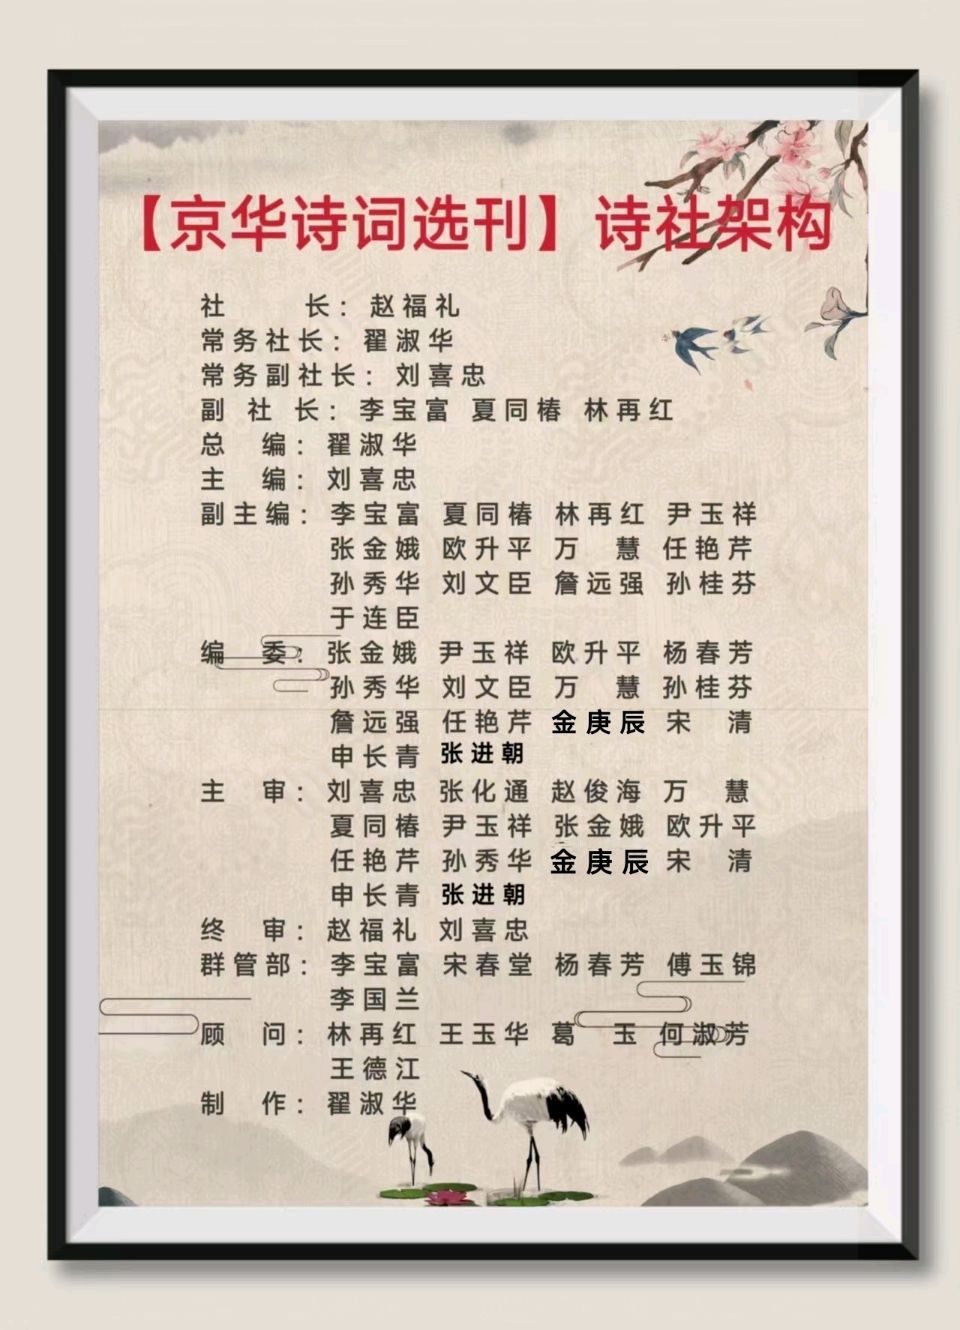 【京华诗词选刊】诗社架构
社 长：赵福礼
常务社长：翟淑华
常务副社长：刘喜忠
副 社 长：李宝富 夏同椿 林再红
总 编：翟淑华
主 编：刘喜忠
副主编：李宝富 夏同椿 林再红 尹玉祥
张金娥 欧升平 万 慧 任艳芹
孙秀华 刘文臣 詹远强 孙桂芬
于连臣
编 委：张金娥 尹玉祥 欧升平 杨春芳
孙秀华 刘文臣 万 慧 孙桂芬
詹远强 任艳芹 金庚辰 宋 清
申长青 张进朝
主 审：刘喜忠 张化通 赵俊海 万 慧
夏同椿 尹玉祥 张金娥 欧升平
任艳芹 孙秀华 金庚辰 宋 清
申长青 张进朝
终 审：赵福礼 刘喜忠
群管部：李宝富 宋春堂 杨春芳 傅玉锦
李国兰
顾 问：林再红 王玉华 葛 玉 何淑芳
王德江
制 作：翟淑华